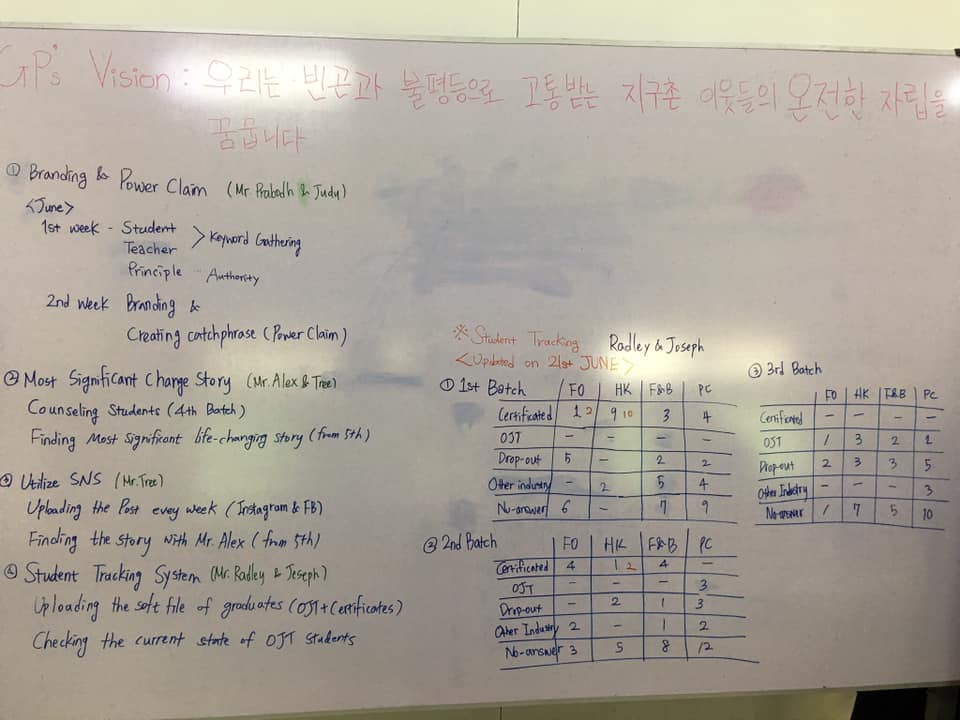 GP's Vision : 우리는 빈곤과 불평등으로 고통받는 지구촌 이웃들의 온전한 자립을
꿈꿉니다
① Branding & Power Claim (Mr Prabodh & Judy)
<June>
1st week - Student
Teacher > Keyword Gathering
Principle - Authority
2nd week Branding &
Creating catchphrase (Power Claim)
② Most Significant Change Story (Mr. Alex & Tree)
Counseling Students (4th Batch)
Finding Most Significant life-changing story (from 5th)
③ Utilize SNS (Mr. Tree)
Uploading the Post evey week (Instagram & FB)
Finding the story with Mr. Alex (from 5th)
④ Student Tracking System (Mr. Radley & Jeseph)
Uploading the soft file of graduates (OJT + Certificates)
Checking the current state of OJT students
※ Student Tracking Radley & Joseph
<Updated on 21st JUNE>
① 1st Batch FO HK F&B PC
Certificated 1 2 9 10 3 4
OJT - - - -
Drop-out 5 - 2 2
Other industry - 2 5 4
No-answer 6 - 7 9
② 2nd Batch FO HK F&B PC
Certificated 4 1 2 4 -
OJT - - - 3
Drop-out - 2 1 3
Other Industry 2 - 1 2
No-answer 3 5 8 12
③ 3rd Batch
FO HK F&B PC
Certificated - - - -
OJT 1 3 2 1
Drop-out 2 3 3 5
Other Industry - - - 3
No-answer 1 7 5 10